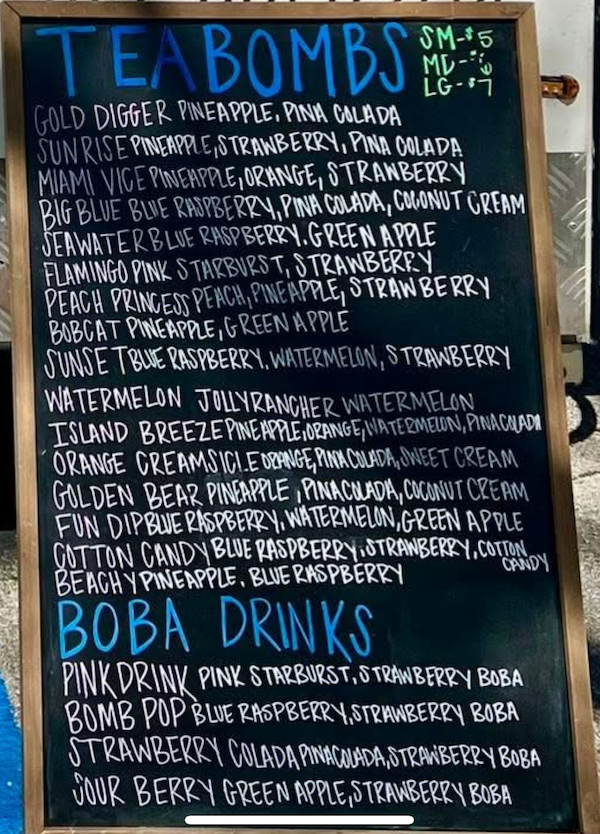 TEABOMBS
SM-$5
MD-$6
LG-$7
GOLD DIGGER PINEAPPLE, PINA COLADA
SUNRISE PINEAPPLE, STRAWBERRY, PINA COLADA
MIAMI VICE PINEAPPLE, ORANGE, STRAWBERRY
BIG BLUE BLUE RASPBERRY, PINA COLADA, COCONUT CREAM
SEAWATER BLUE RASPBERRY. GREEN APPLE
FLAMINGO PINK STARBURST, STRAWBERRY
PEACH PRINCESS PEACH, PINEAPPLE, STRAWBERRY
BOBCAT PINEAPPLE, GREEN APPLE
SUNSET BLUE RASPBERRY. WATERMELON, STRAWBERRY
WATERMELON JOLLYRANCHER WATERMELON
ISLAND BREEZE PINEAPPLE, ORANGE, WATERMELON, PINA COLADA
ORANGE CREAMSICLE ORANGE, PINA COLADA, SWEET CREAM
GOLDEN BEAR PINEAPPLE, PINA COLADA, COCONUT CREAM
FUN DIP BLUE RASPBERRY, WATERMELON, GREEN APPLE
COTTON CANDY BLUE RASPBERRY, STRAWBERRY, COTTON
CANDY
BEACHY PINEAPPLE, BLUE RASPBERRY
BOBA DRINKS
PINK DRINK PINK STARBURST, STRAWBERRY BOBA
BOMB POP BLUE RASPBERRY, STRAWBERRY BOBA
STRAWBERRY COLADA PINA COLADA, STRAWBERRY BOBA
SOUR BERRY GREEN APPLE, STRAWBERRY BOBA